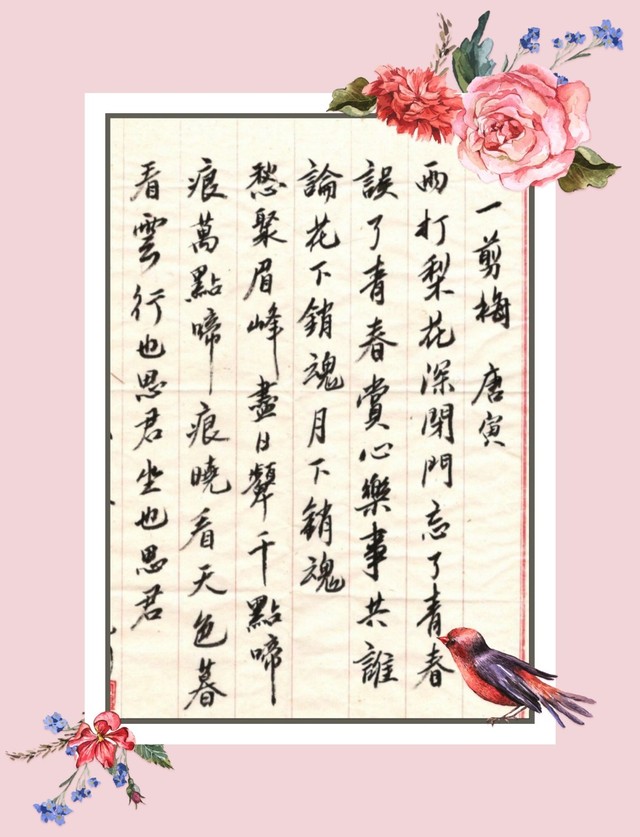 一剪梅 唐寅
雨打梨花深閉門忘了青春
誤了青春賞心樂事共誰
論花下銷魂月下銷魂
愁聚眉峰盡日顰千點啼
痕萬點啼痕曉看天色暮
看雲行也思君坐也思君